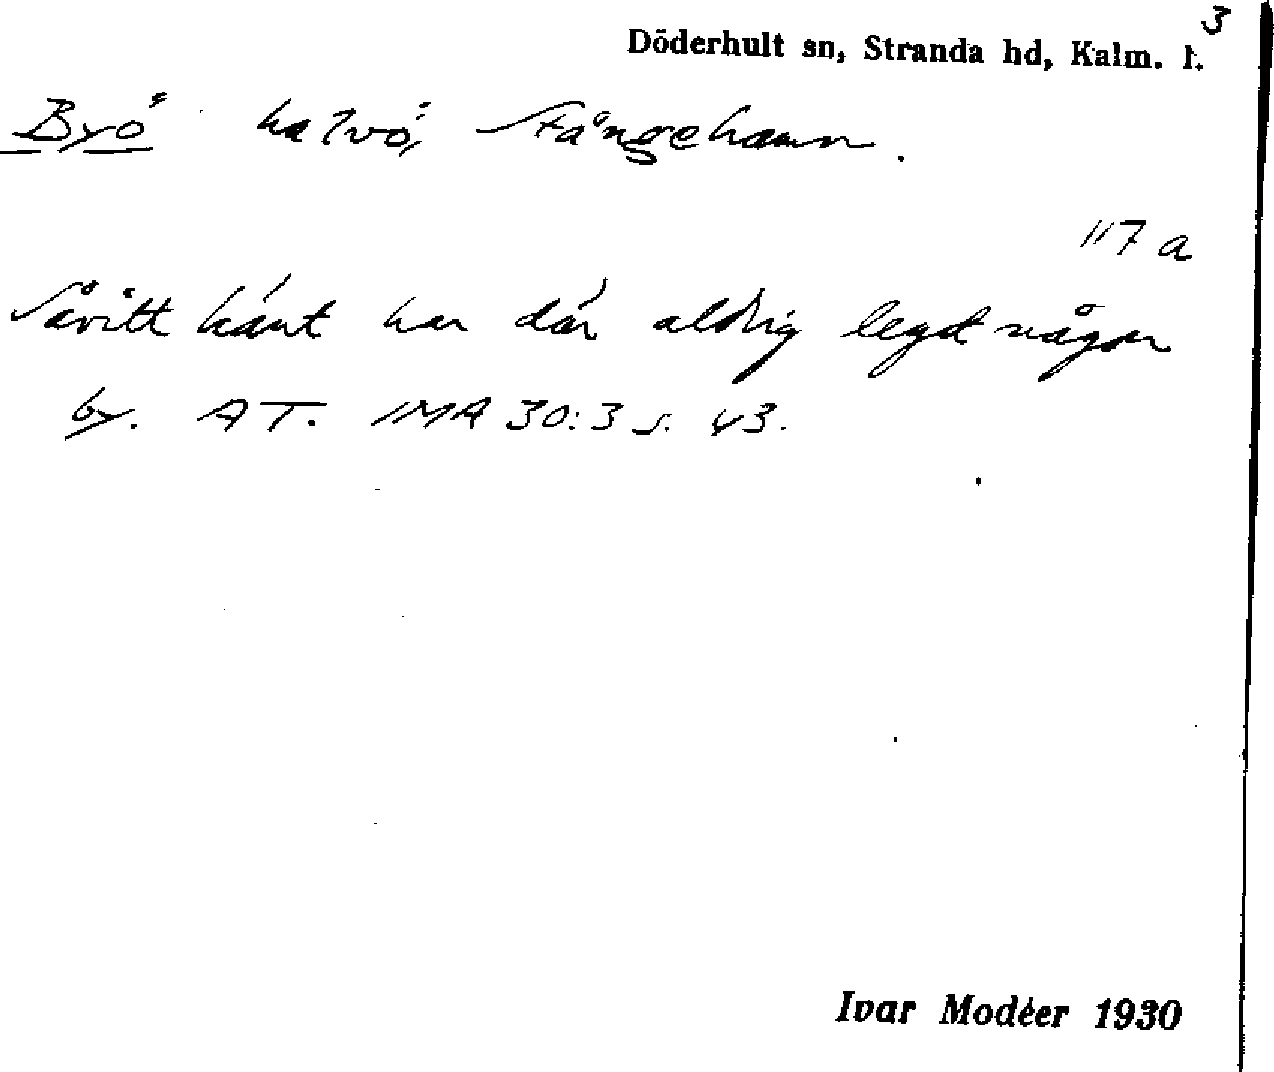 3
Döderhult sn, Stranda hd, Kalm. l.
Byö halvö, Stångehamn.
117 a
Såvitt känt har där aldrig legat någon
by. AT. IMA 30:3 s. 43.
Ivar Modéer 1930